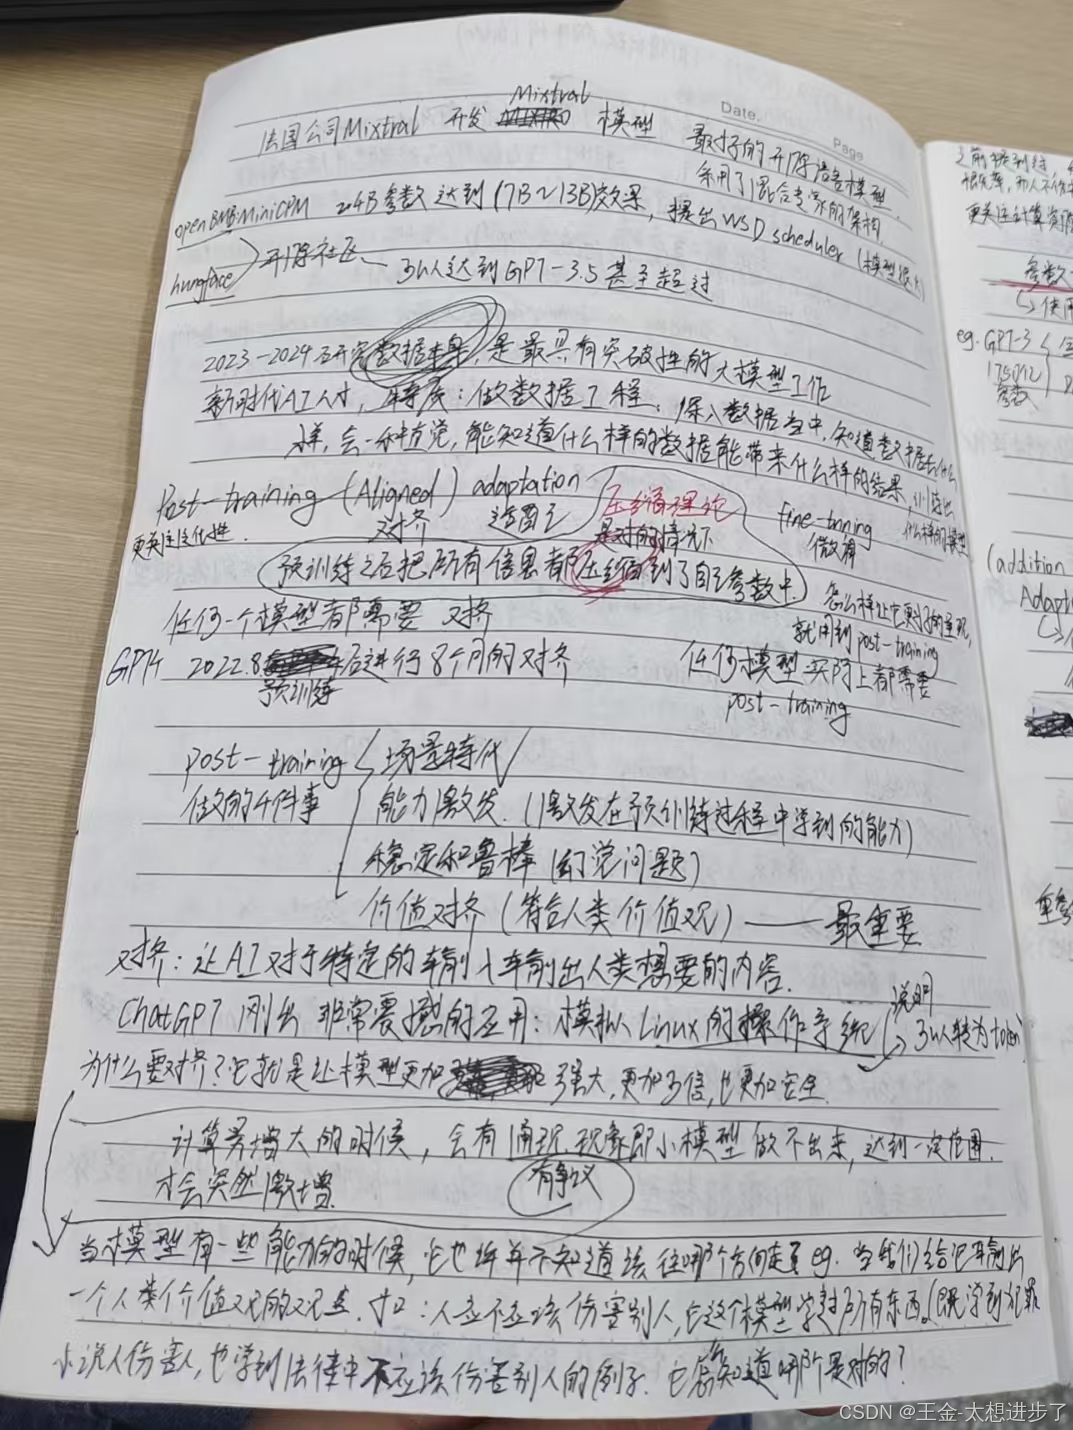 Date.
Page
法国公司Mixtral 开发 Mixtral 模型
最好的开源语言模型
采用了混合专家的架构
openBMB:MiniCPM 24B参数达到(7B~13B)效果, 提出WSD scheduler (模型
hungface
开源社区
可以达到GPT-3.5甚至超过
2023-2024 数据 , 是最具有突破性的大模型工作
新时代AI人才, 特质: 做数据工程, 深入数据当中, 知道数据长什么
样, 会一种直觉, 能知道什么样的数据能带来什么样的结果, 训练出
什么样的模型
Post-training (Aligned) adaptation
对齐 适应
更关注
压缩理论
是对的情况下
fine-tning
微调
预训练之后把所有信息都压缩到了自己参数中.
怎么样让它更好的呈现,
就用到post-training
任何一个模型都需要 对齐
GPT4 2022.8 后进行8个月的对齐
预训练
任何模型实际上都需要
post-training
post-training
做的4件事
场景特化
能力激发. (激发在预训练过程中学到的能力)
稳定和鲁棒 (幻觉问题)
价值对齐 (符合人类价值观) —— 最重要
对齐: 让AI对于特定的输入输出人类想要的内容.
ChatGPT 刚出 非常震撼的应用: 模拟Linux的操作系统
说明
可以转为token
为什么要对齐? 它就是让模型更加 强大, 更加可信, 也更加安全.
计算量增大的时候, 会有涌现现象即小模型做不出来, 达到一定范围.
才会突然激增.
有争议
当大模型有一些能力的时候, 它也许并不知道该往哪个方向走 eg. 当我们给它输出
一个人类价值观的观点. 如: 人应不应该伤害别人, 它这个模型学过所有东西.(既学到犯罪
小说人伤害人, 也学到法律中不应该伤害别人的例子. 它怎知道哪个是对的?
更关注计算资源
参数
使用
eg. GPT-3
175012
参数
(addition
Adapt
CSDN @王金-太想进步了